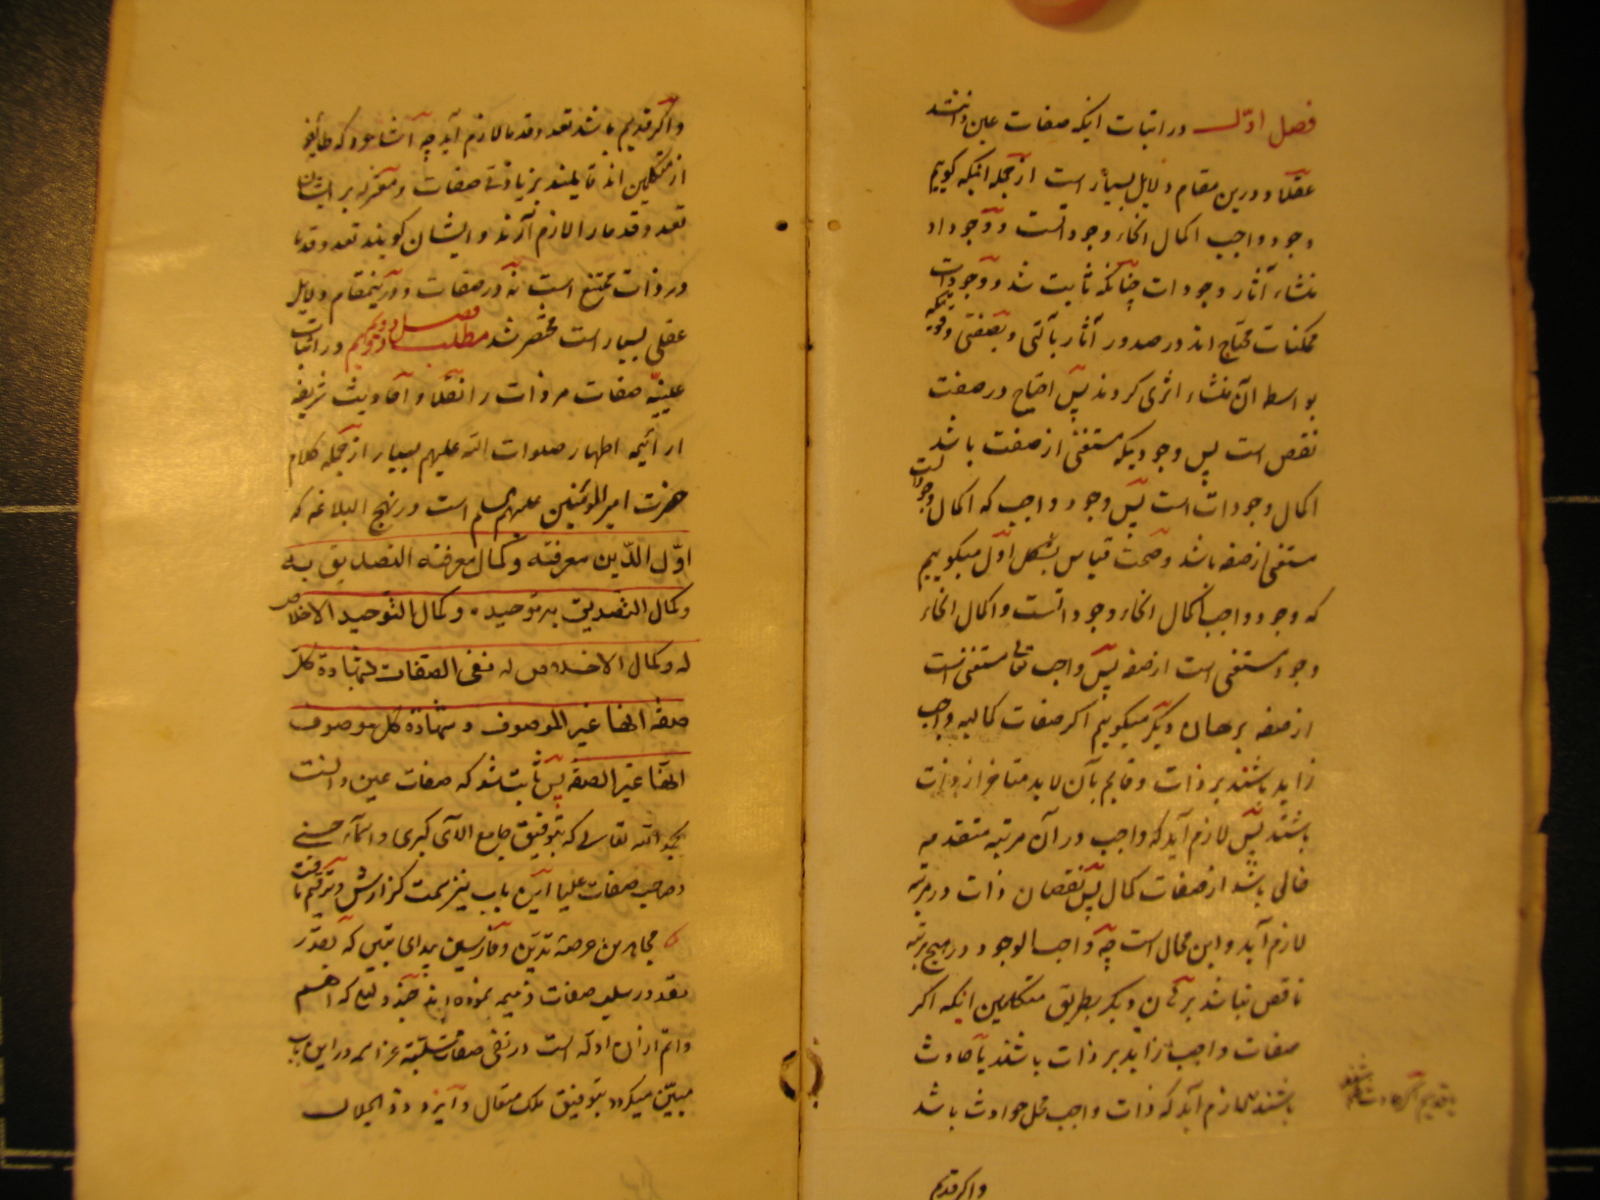 فصل اول در اثبات اینکه صفات عین ذاتند
عقلا و درین مقام دلایل بسیار است از جمله اینکه گوییم
وجود واجب اکمال انحاء وجوداتست و وجود او
منشاء آثار وجودات چنانکه ثابت شد و وجودات
ممکنات محتاج اند در صدور آثار بآلتی و بصفتی و قوتیکه
بواسطه آن منشاء اثری کردند پس احتیاج در صفت
نقص است پس وجودیکه مستغنی از صفت باشد
اکمال وجودات است پس وجود واجب که اکمال وجوداتست
مستغنی از صفه باشد و صحت قیاس بشکل اول میگوییم
که وجود واجب اکمال انحاء وجوداتست و اکمال انحاء
وجود مستغنی است از صفه پس واجب تعالی مستغنی است
از صفه برهان دیگر میگوییم اگر صفات کمالیه واجب
زاید باشند بر ذات و قایم بآن لابد متاخر از ذات
باشند پس لازم آید که واجب در آن مرتبه متقدمه
خالی باشد از صفات کمال پس نقصان ذات در مرتبه
لازم آید و این محال است چه واجب الوجود در هیچ مرتبه
ناقص نباشد برهان دیگر بطریق متکلمین اینکه اگر
صفات واجب زاید بر ذات باشند یا حادث
باشند لازم آید که ذات واجب محل حوادث باشد
یا قدیم اگر حادث باشند
و اگر قدیم
و اگر قدیم باشد تعدد قدما لازم آید چه اشاعره که طایفه
از متکلمین اند قایلند بزیادتی صفات و معتزله بر ایشان
تعدد قدما را لازم آرند و ایشان گویند تعدد قدما
در ذات ممتنع است نه در صفات و درینمقام دلایل
عقلی بسیار است مختصر شد مطلب دویم فصل دویم در اثبات
عینیه صفات مر ذات را نقلا و احادیث شریفه
از ائیمه اطهار صلوات الله علیهم بسیار از جمله کلام
حضرت امیر المؤمنین علیهم السلم است در نهج البلاغه که
اوّل الدّین معرفته و کمال معرفته التصدیق به
و کمال التصدیق به توحیده و کمال التوحید الاخلاص
له و کمال الاخلاص له نفی الصفات لشهادة کل
صفه انها غیر الموصوف و شهادة کل موصوف
انها غیر الصفه پس ثابت شد که صفات عین ذاتست
بحمد الله تعالی که بتوفیق جامع الآی کبری و اسمآء حسنی
و صاحب صفات علیا این باب نیز سمت گزارش و ترقیم یافت
مجاهدین عرصه تدین و فارسین بیدای یقین که بقدر
مقدور سلب صفات ذمیمه نموده اند که
و اتم از آن ادله است در نفی صفات سلبیه عزاسمه در این باب
مبین میگردد بتوفیق ملک متعال و ایزد ذو الجلال